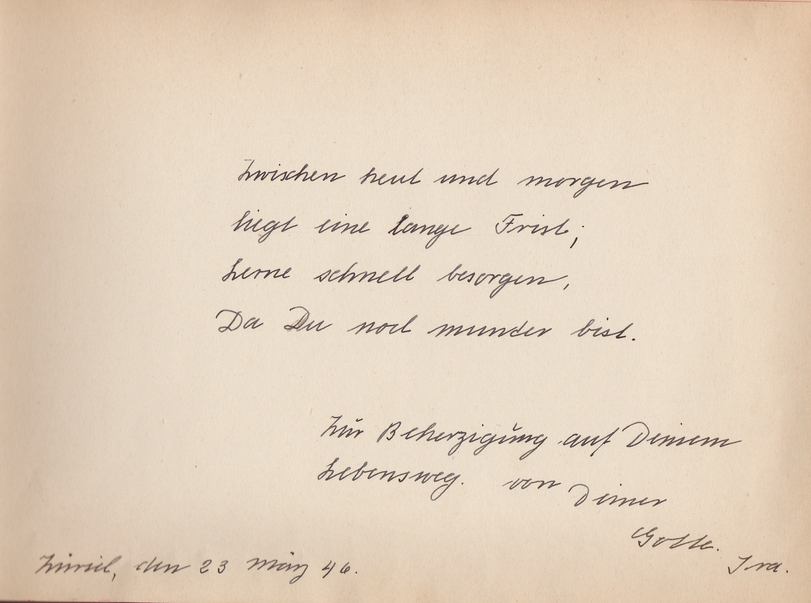 Zwischen heut und morgen
liegt eine lange Frist;
Lerne schnell besorgen,
Da Du noch munter bist.
Zur Beherzigung auf Deinem
Lebensweg. von Deiner
Gotte.
Zürich, den 23 März 46.